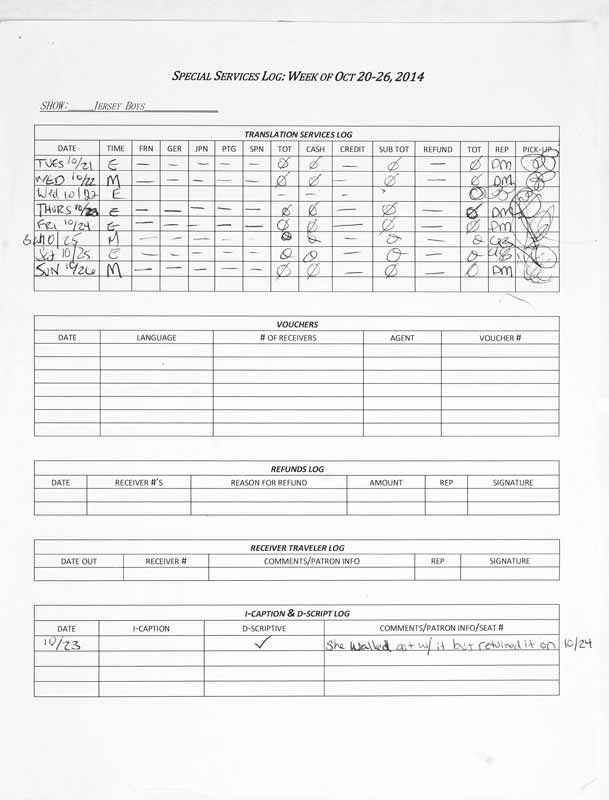 SPECIAL SERVICES LOG: WEEK OF OCT 20-26, 2014
SHOW: JERSEY BOYS
TRANSLATION SERVICES LOG
DATE TIME FRN GER JPN PTG SPN TOT CASH CREDIT SUB TOT REFUND TOT REP PICK-UP
TUES 10/21 E — — — — — Ø Ø — Ø — Ø DM
WED 10/22 M — — — — — Ø Ø — Ø — Ø DM
Wed 10/22 E
THURS 10/23 E — — — — — Ø Ø — Ø — Ø DM
FRI 10/24 E — — — — — Ø Ø — Ø — Ø DM
Sat 10/25 M — — — — — Ø Ø — Ø — Ø
Sat 10/25 E — — — — — Ø Ø — Ø — Ø
SUN 10/26 M — — — — — Ø Ø — Ø — Ø DM
VOUCHERS
DATE LANGUAGE # OF RECEIVERS AGENT VOUCHER #
REFUNDS LOG
DATE RECEIVER #'S REASON FOR REFUND AMOUNT REP SIGNATURE
RECEIVER TRAVELER LOG
DATE OUT RECEIVER # COMMENTS/PATRON INFO REP SIGNATURE
I-CAPTION & D-SCRIPT LOG
DATE I-CAPTION D-SCRIPTIVE COMMENTS/PATRON INFO/SEAT #
10/23 ✓ She walked out w/ it but returned it on 10/24